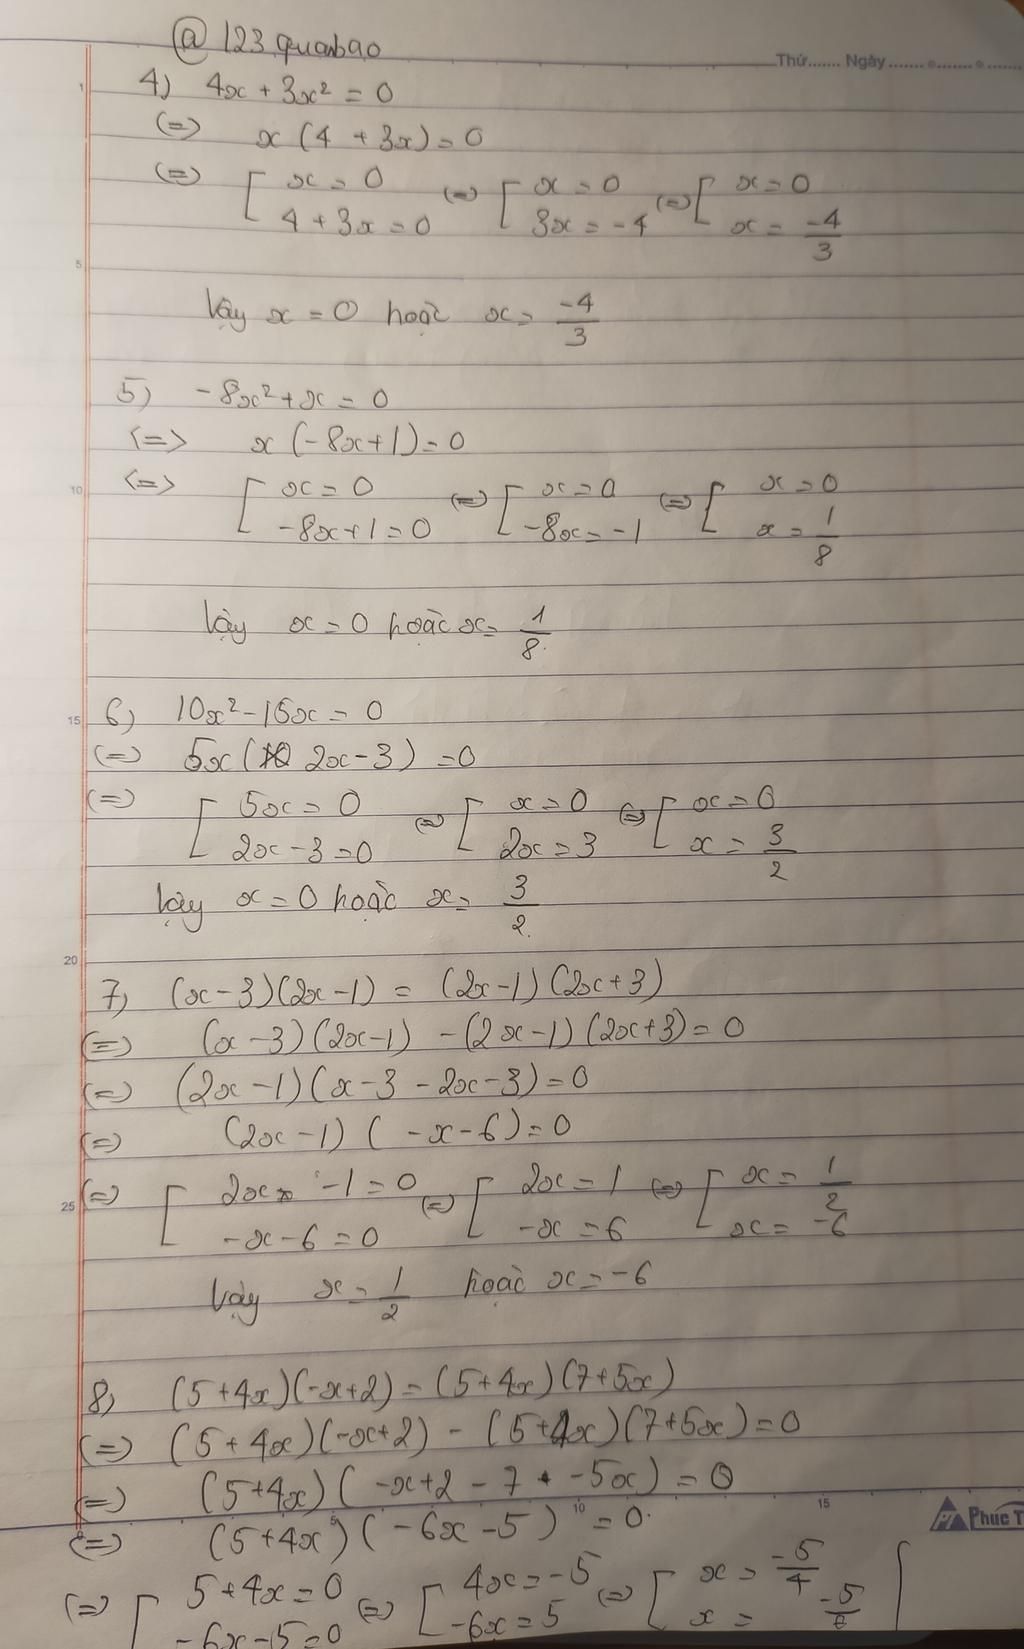 @ 123 quanbao
Thứ....... Ngày .................
4) 4x + 3x² = 0
(=) x (4 + 3x) = 0
(=) [ x = 0 (=) [ x = 0 (=) [ x = 0
4 + 3x = 0 3x = -4 x = -4/3
Vậy x = 0 hoặc x = -4/3
5) -8x² + x = 0
<=> x (-8x+1) = 0
<=> [ x = 0 (=) [ x = 0 (=) [ x = 0
-8x+1 = 0 -8x = -1 x = 1/8
Vậy x = 0 hoặc x = 1/8
6) 10x² - 15x = 0
(=) 5x ( 2x - 3) = 0
(=) [ 5x = 0 (=) [ x = 0 (=) [ x = 0
2x - 3 = 0 2x = 3 x = 3/2
Vậy x = 0 hoặc x = 3/2
7) (x - 3)(2x - 1) = (2x - 1)(2x + 3)
(=) (x - 3)(2x - 1) - (2x - 1)(2x + 3) = 0
(=) (2x - 1)(x - 3 - 2x - 3) = 0
(=) (2x - 1) ( -x - 6) = 0
(=) [ 2x - 1 = 0 (=) [ 2x = 1 (=) [ x = 1/2
-x - 6 = 0 -x = 6 x = -6
Vậy x = 1/2 hoặc x = -6
8) (5+4x)(-x+2) = (5+4x)(7+5x)
(=) (5+4x)(-x+2) - (5+4x)(7+5x) = 0
(=) (5+4x) ( -x+2 - 7 -5x) = 0
(=) (5+4x) ( -6x - 5) = 0.
(=) [ 5+4x = 0 (=) [ 4x = -5 (=) [ x = -5/4 [
-6x - 5 = 0 -6x = 5 x = -5/6
1
5
10
15
20
25
5
10
15
Phuc T